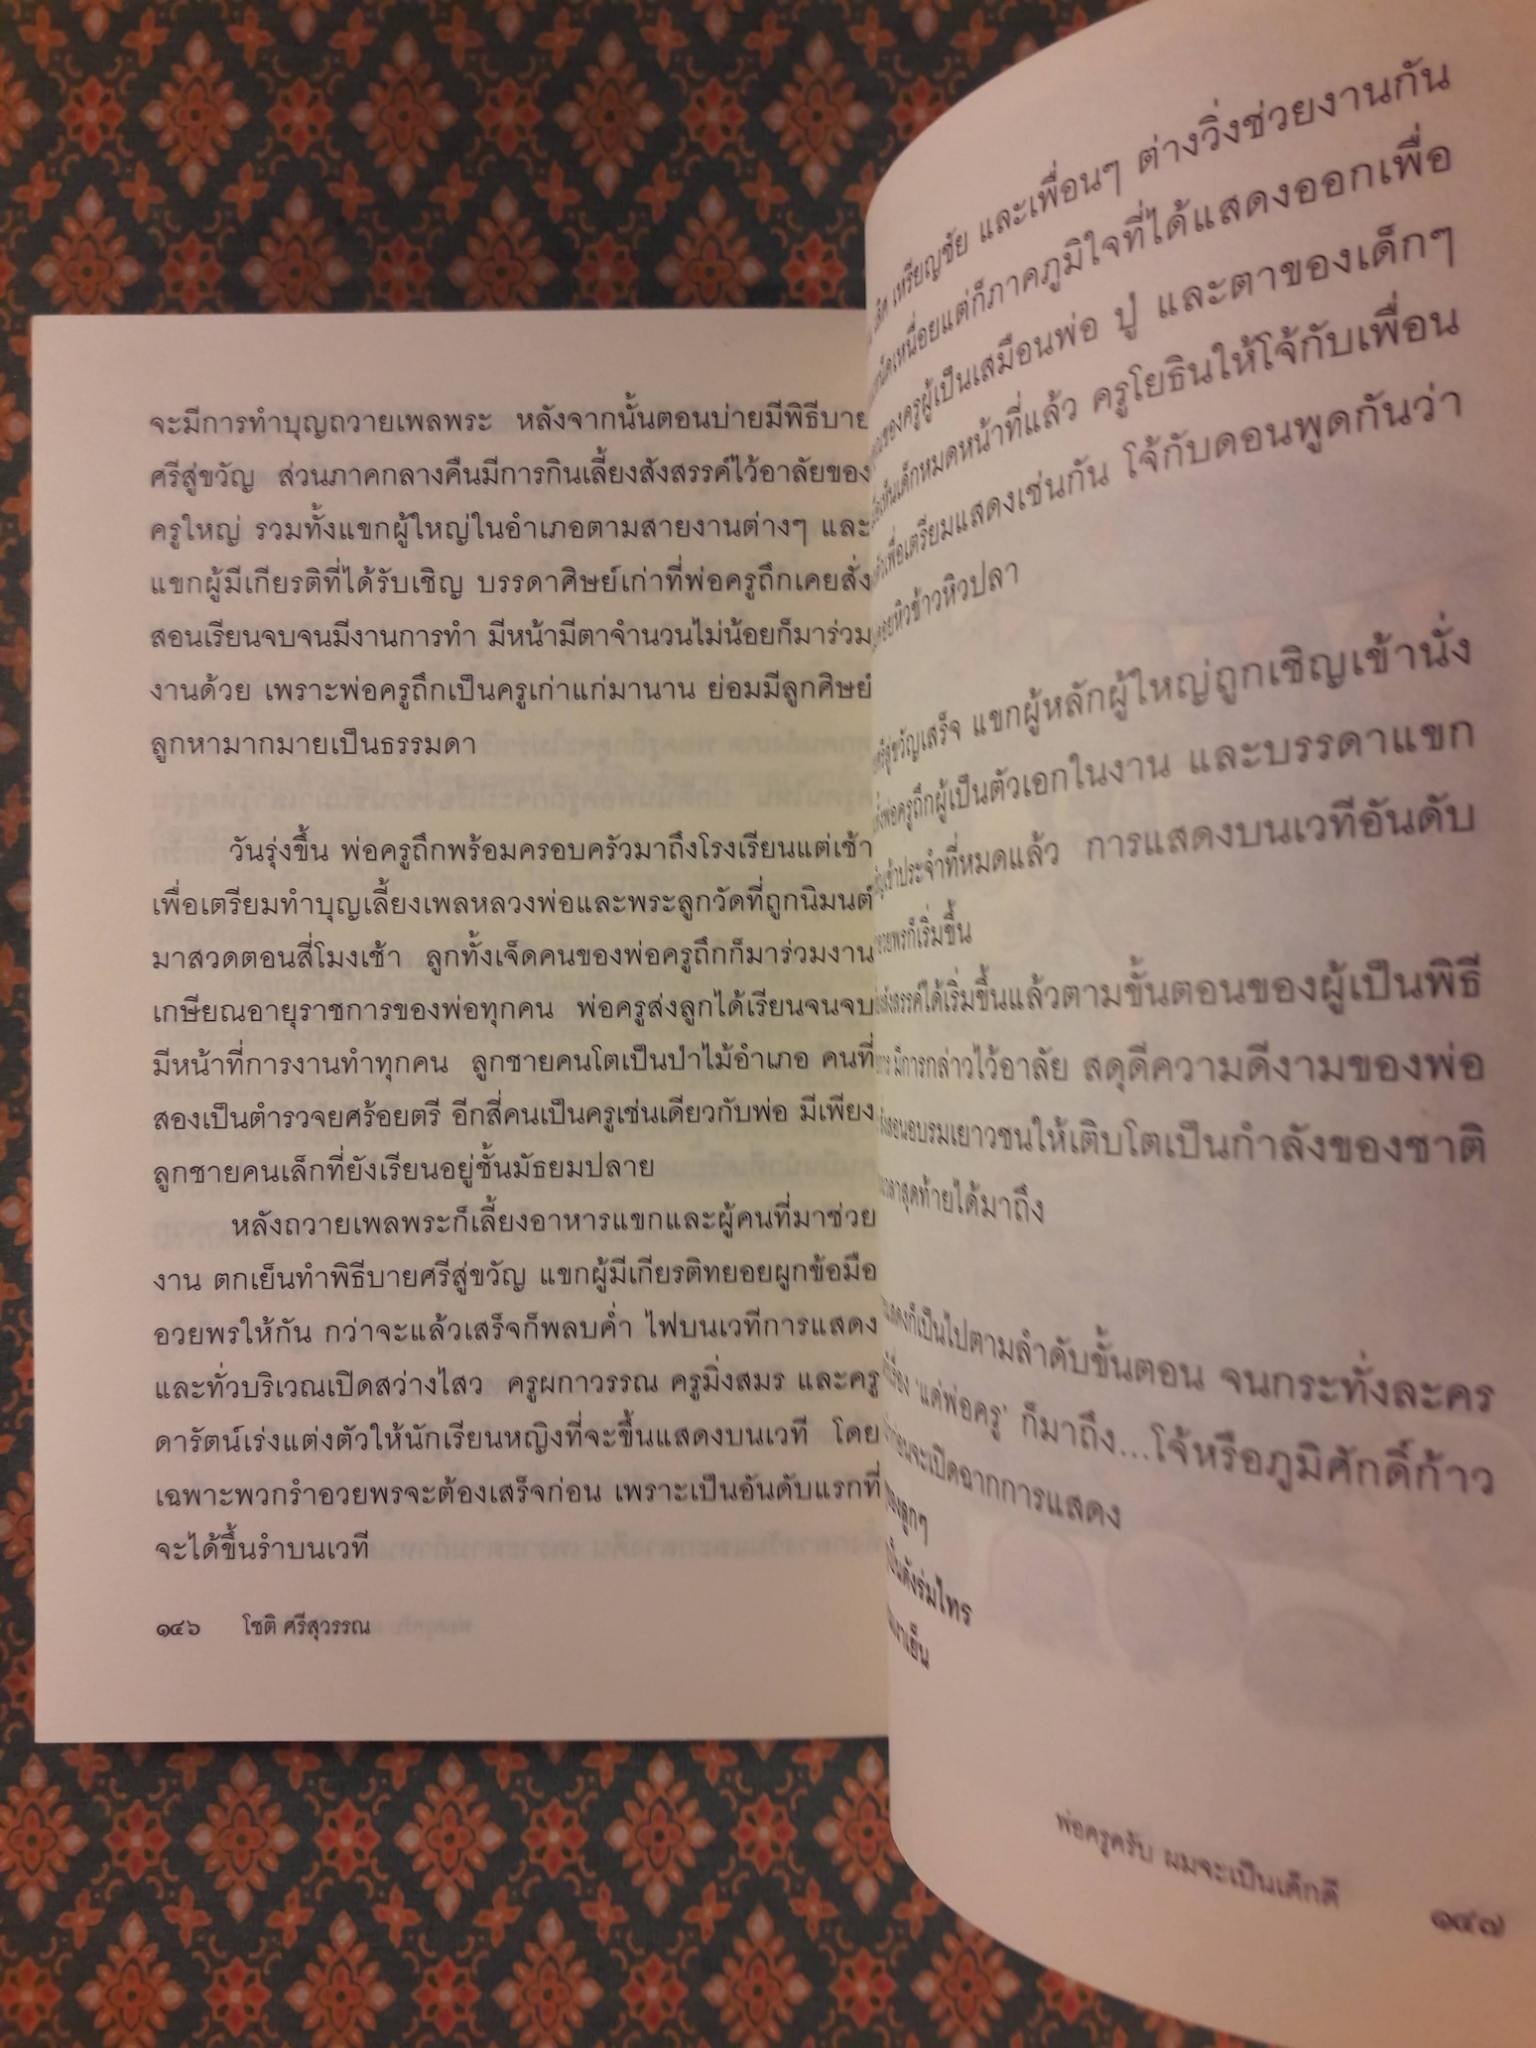 จะมีการทำบุญถวายเพลพระ หลังจากนั้นตอนบ่ายมีพิธีบาย
ศรีสู่ขวัญ ส่วนภาคกลางคืนมีการกินเลี้ยงสังสรรค์ไว้อาลัยของ
ครูใหญ่ รวมทั้งแขกผู้ใหญ่ในอำเภอตามสายงานต่างๆ และ
แขกผู้มีเกียรติที่ได้รับเชิญ บรรดาศิษย์เก่าที่พ่อครูถึกเคยสั่ง
สอนเรียนจบจนมีงานการทำ มีหน้ามีตาจำนวนไม่น้อยก็มาร่วม
งานด้วย เพราะพ่อครูถึกเป็นครูเก่าแก่มานาน ย่อมมีลูกศิษย์
ลูกหามากมายเป็นธรรมดา
วันรุ่งขึ้น พ่อครูถึกพร้อมครอบครัวมาถึงโรงเรียนแต่เช้า
เพื่อเตรียมทำบุญเลี้ยงเพลหลวงพ่อและพระลูกวัดที่ถูกนิมนต์
มาสวดตอนสี่โมงเช้า ลูกทั้งเจ็ดคนของพ่อครูถึกก็มาร่วมงาน
เกษียณอายุราชการของพ่อทุกคน พ่อครูส่งลูกได้เรียนจนจบ
มีหน้าที่การงานทำทุกคน ลูกชายคนโตเป็นป่าไม้อำเภอ คนที่
สองเป็นตำรวจยศร้อยตรี อีกสี่คนเป็นครูเช่นเดียวกับพ่อ มีเพียง
ลูกชายคนเล็กที่ยังเรียนอยู่ชั้นมัธยมปลาย
หลังถวายเพลพระก็เลี้ยงอาหารแขกและผู้คนที่มาช่วย
งาน ตกเย็นทำพิธีบายศรีสู่ขวัญ แขกผู้มีเกียรติทยอยผูกข้อมือ
อวยพรให้กัน กว่าจะแล้วเสร็จก็พลบค่ำ ไฟบนเวทีการแสดง
และทั่วบริเวณเปิดสว่างไสว ครูผกาวรรณ ครูมิ่งสมร และครู
ดารัตน์เร่งแต่งตัวให้นักเรียนหญิงที่จะขึ้นแสดงบนเวที โดย
เฉพาะพวกรำอวยพรจะต้องเสร็จก่อน เพราะเป็นอันดับแรกที่
จะได้ขึ้นรำบนเวที
๑๔๖ โชติ ศรีสุวรรณ
เหรียญชัย และเพื่อนๆ ต่างวิ่งช่วยงานกัน
เหนื่อยแต่ก็ภาคภูมิใจที่ได้แสดงออกเพื่อ
ของครูผู้เป็นเสมือนพ่อ ปู่ และตาของเด็กๆ
เด็กหมดหน้าที่แล้ว ครูโยธินให้โจ้กับเพื่อน
เพื่อเตรียมแสดงเช่นกัน โจ้กับดอนพูดกันว่า
หิวข้าวหิวปลา
ศรีสู่ขวัญเสร็จ แขกผู้หลักผู้ใหญ่ถูกเชิญเข้านั่ง
พ่อครูถึกผู้เป็นตัวเอกในงาน และบรรดาแขก
เข้าประจำที่หมดแล้ว การแสดงบนเวทีอันดับ
อวยพรก็เริ่มขึ้น
สังสรรค์ได้เริ่มขึ้นแล้วตามขั้นตอนของผู้เป็นพิธี
มีการกล่าวไว้อาลัย สดุดีความดีงามของพ่อ
สั่งสอนอบรมเยาวชนให้เติบโตเป็นกำลังของชาติ
เวลาสุดท้ายได้มาถึง
แสดงก็เป็นไปตามลำดับขั้นตอน จนกระทั่งละคร
เรื่อง 'แด่พ่อครู' ก็มาถึง...โจ้หรือภูมิศักดิ์ก้าว
ก่อนจะเปิดฉากการแสดง
ของลูกๆ
เป็นดังร่มไทร
เงาเย็น
พ่อครูครับ ผมจะเป็นเด็กดี ๑๔๗